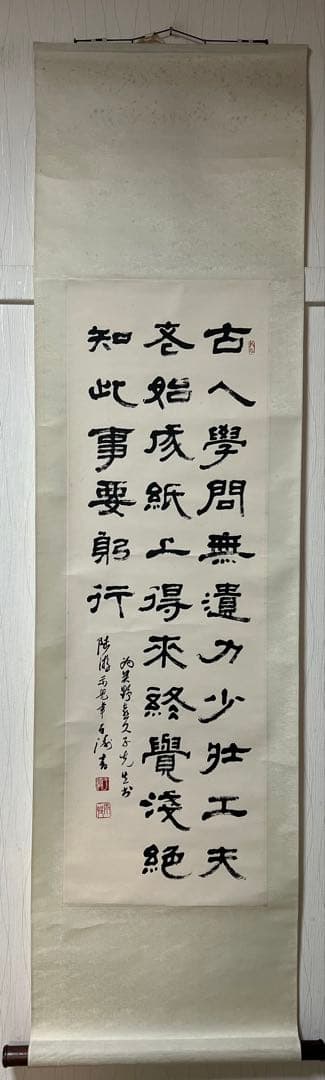 古人學問無遺力少壯工夫
老始成紙上得來終覺淺絕
知此事要躬行
久子先生书
陸游示兒